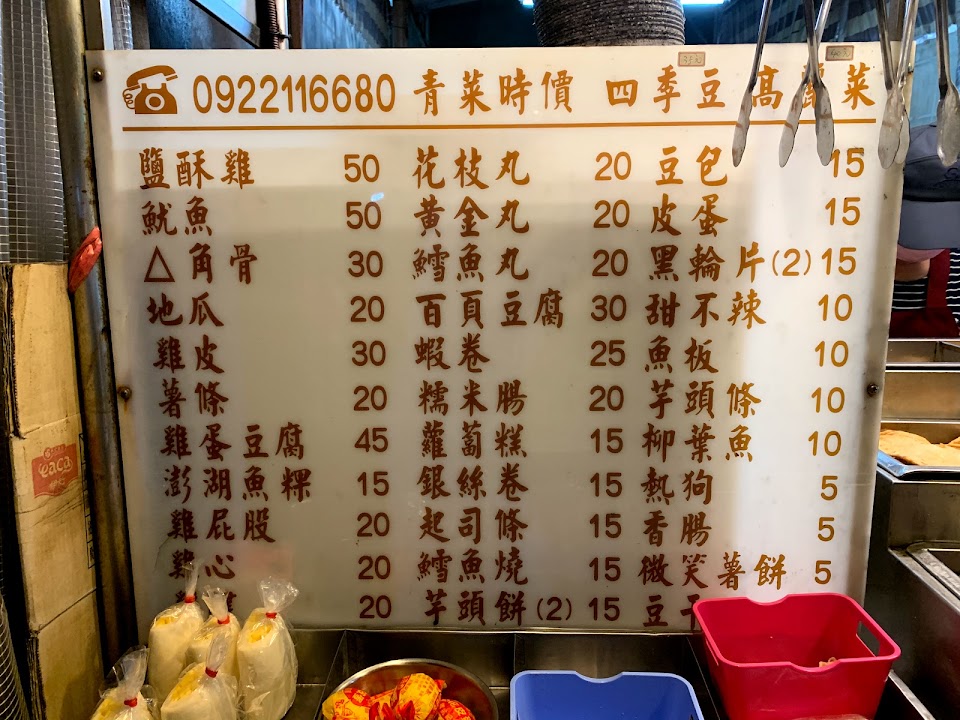 0922116680 青菜時價 四季豆 高麗菜
鹽酥雞 50 花枝丸 20 豆包 15
魷魚 50 黃金丸 20 皮蛋 15
△角骨 30 鱈魚丸 20 黑輪片(2) 15
地瓜 20 百頁豆腐 30 甜不辣 10
雞皮 30 蝦卷 25 魚板 10
薯條 20 糯米腸 20 芋頭條 10
雞蛋豆腐 45 蘿蔔糕 15 柳葉魚 10
澎湖魚粿 15 銀絲卷 15 熱狗 5
雞屁股 20 起司條 15 香腸 5
雞心 20 鱈魚燒 15 微笑薯餅 5
20 芋頭餅(2) 15 豆